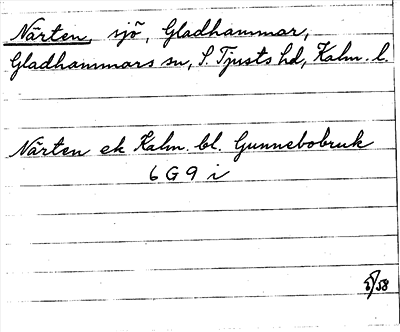 Närten, sjö, Gladhammar,
Gladhammars sn, S. Tjusts hd, Kalm. l.
Närten ek Kalm. bl. Gunnebobruk
6 G 9 i
5/58